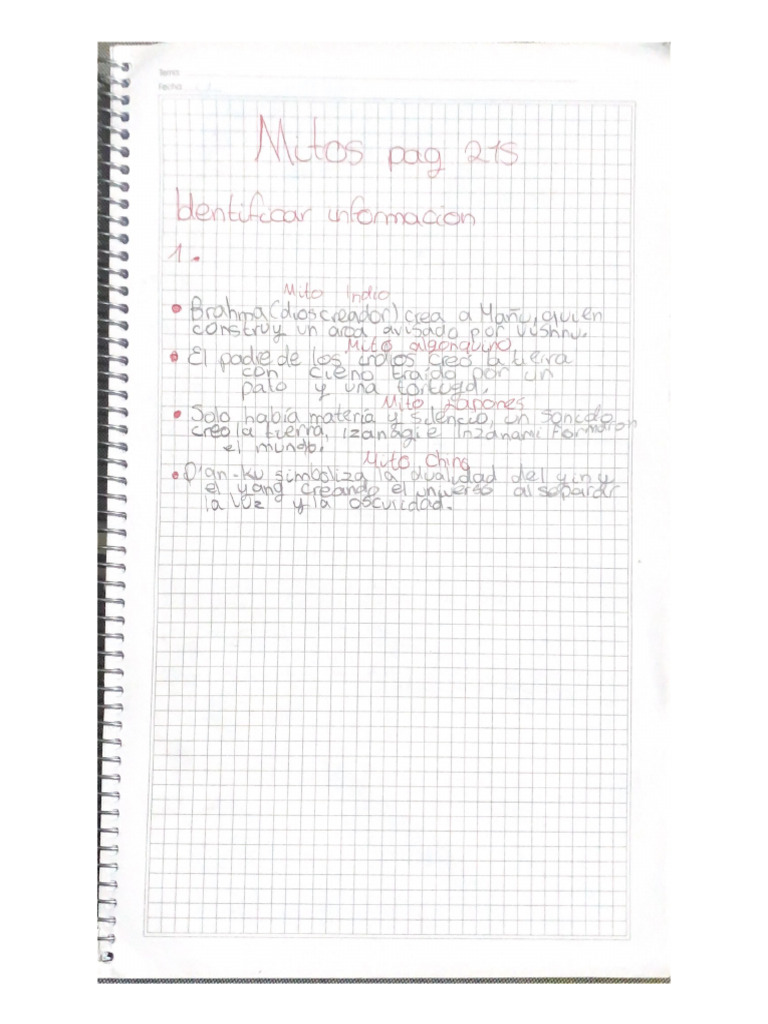 Tema:
Fecha:
Mitos pag 215
Identificar informacion
1.
Mito Indio
• Brahma (dios creador) crea a Mañu, quien
construy un arca avisado por Vushnu.
Mito algonquino
• El padre de los indios creó la tierra
con cieno traído por un
pato y una tortuga.
Mito Japones
• Solo había materia y silencio, un sonido
creo la tierra, Izanagi e Inzanami Formaron
el mundo.
Mito China
• P'an-ku simboliza la dualidad del yin y
el yang creando el universo al separar
la luz y la oscuridad.